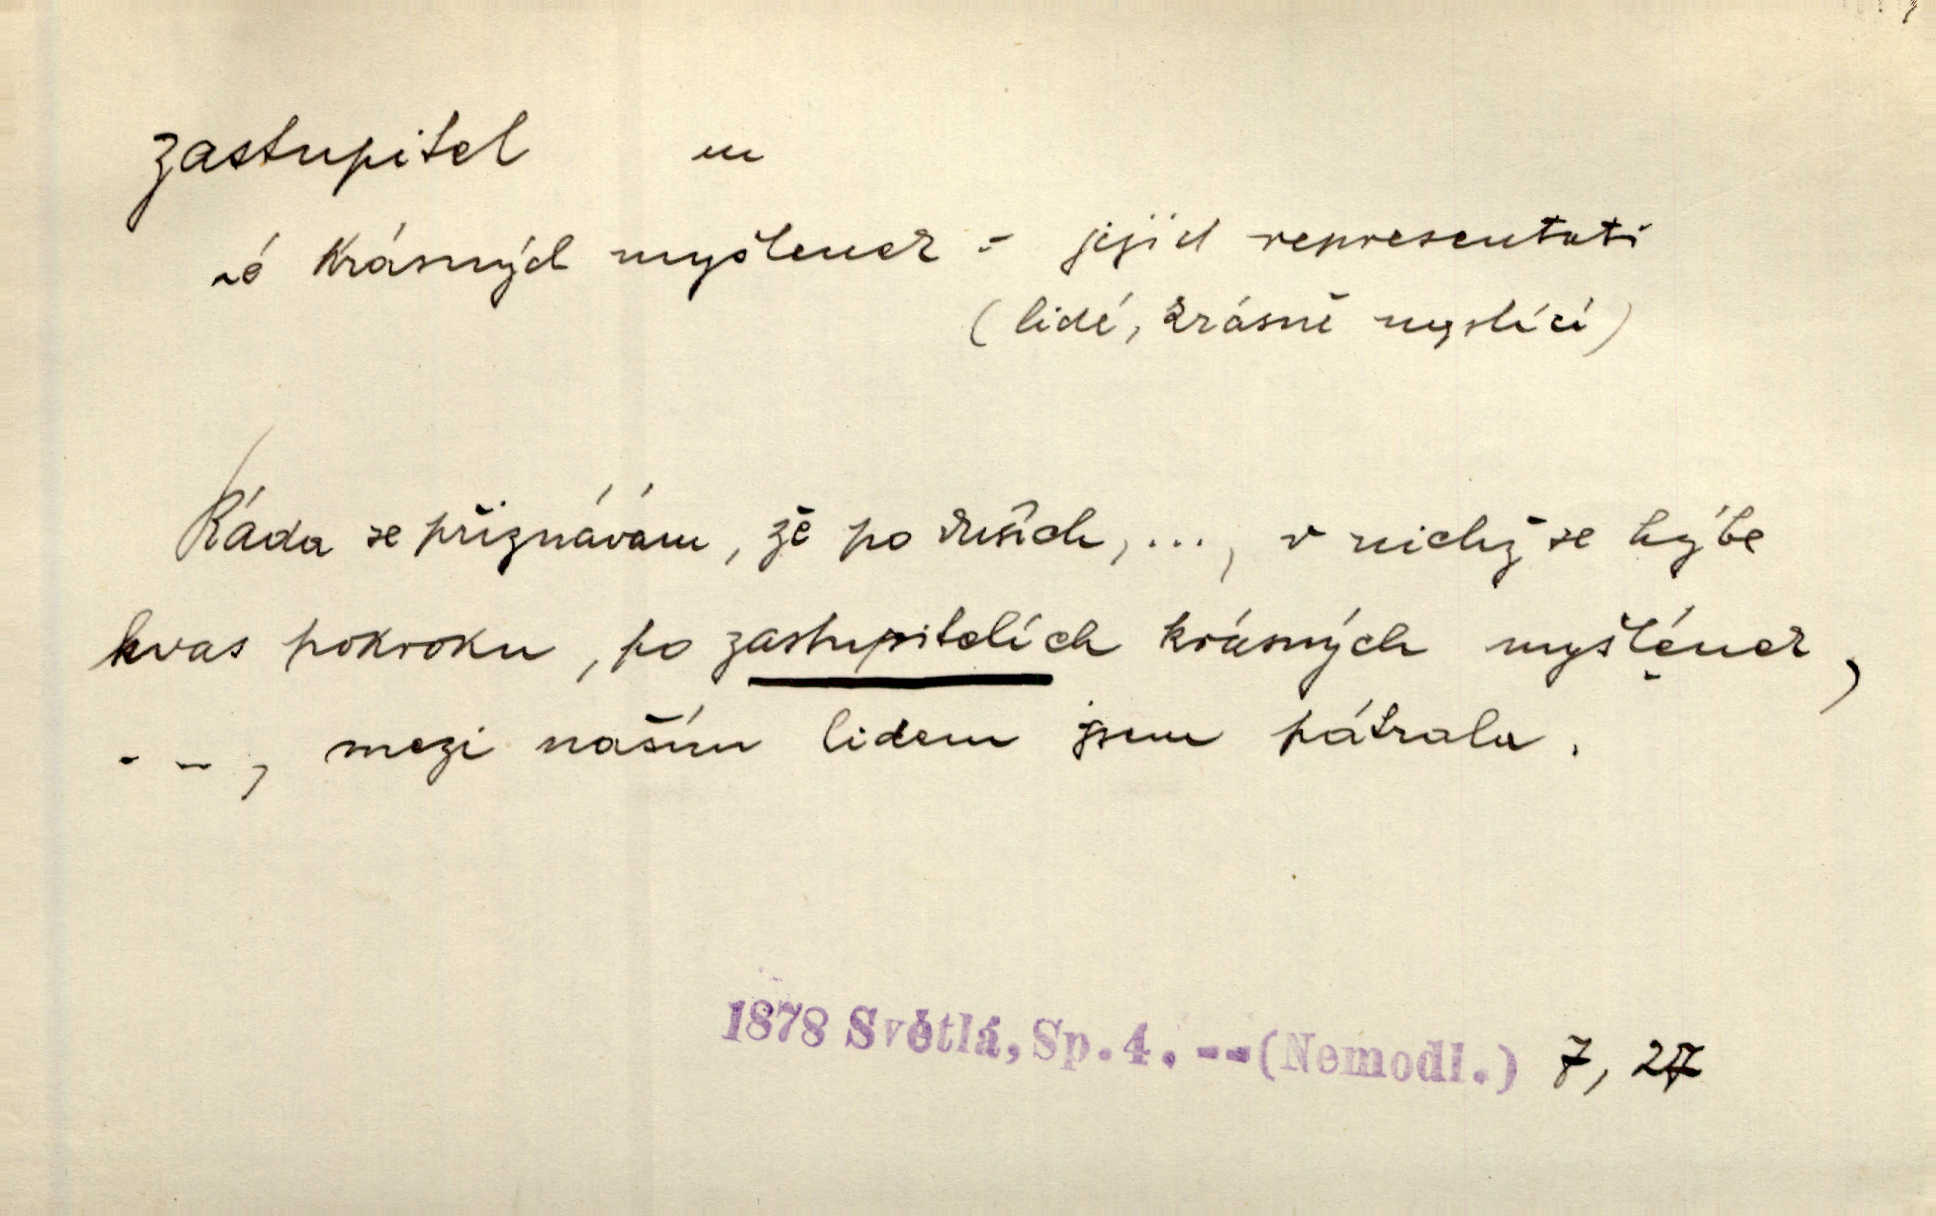 zastupitel m
~é krásných myšlenek = jejich representati
(lidé, krásně myslící)
Ráda se přiznávám, že po duších, ..., v nichž se hýbe
kvas pokroku, po zastupitelích krásných myšlének,
- - , mezi naším lidem jsem pátrala.
1878 Světlá, Sp. 4. -- (Nemodl.) 7, 27